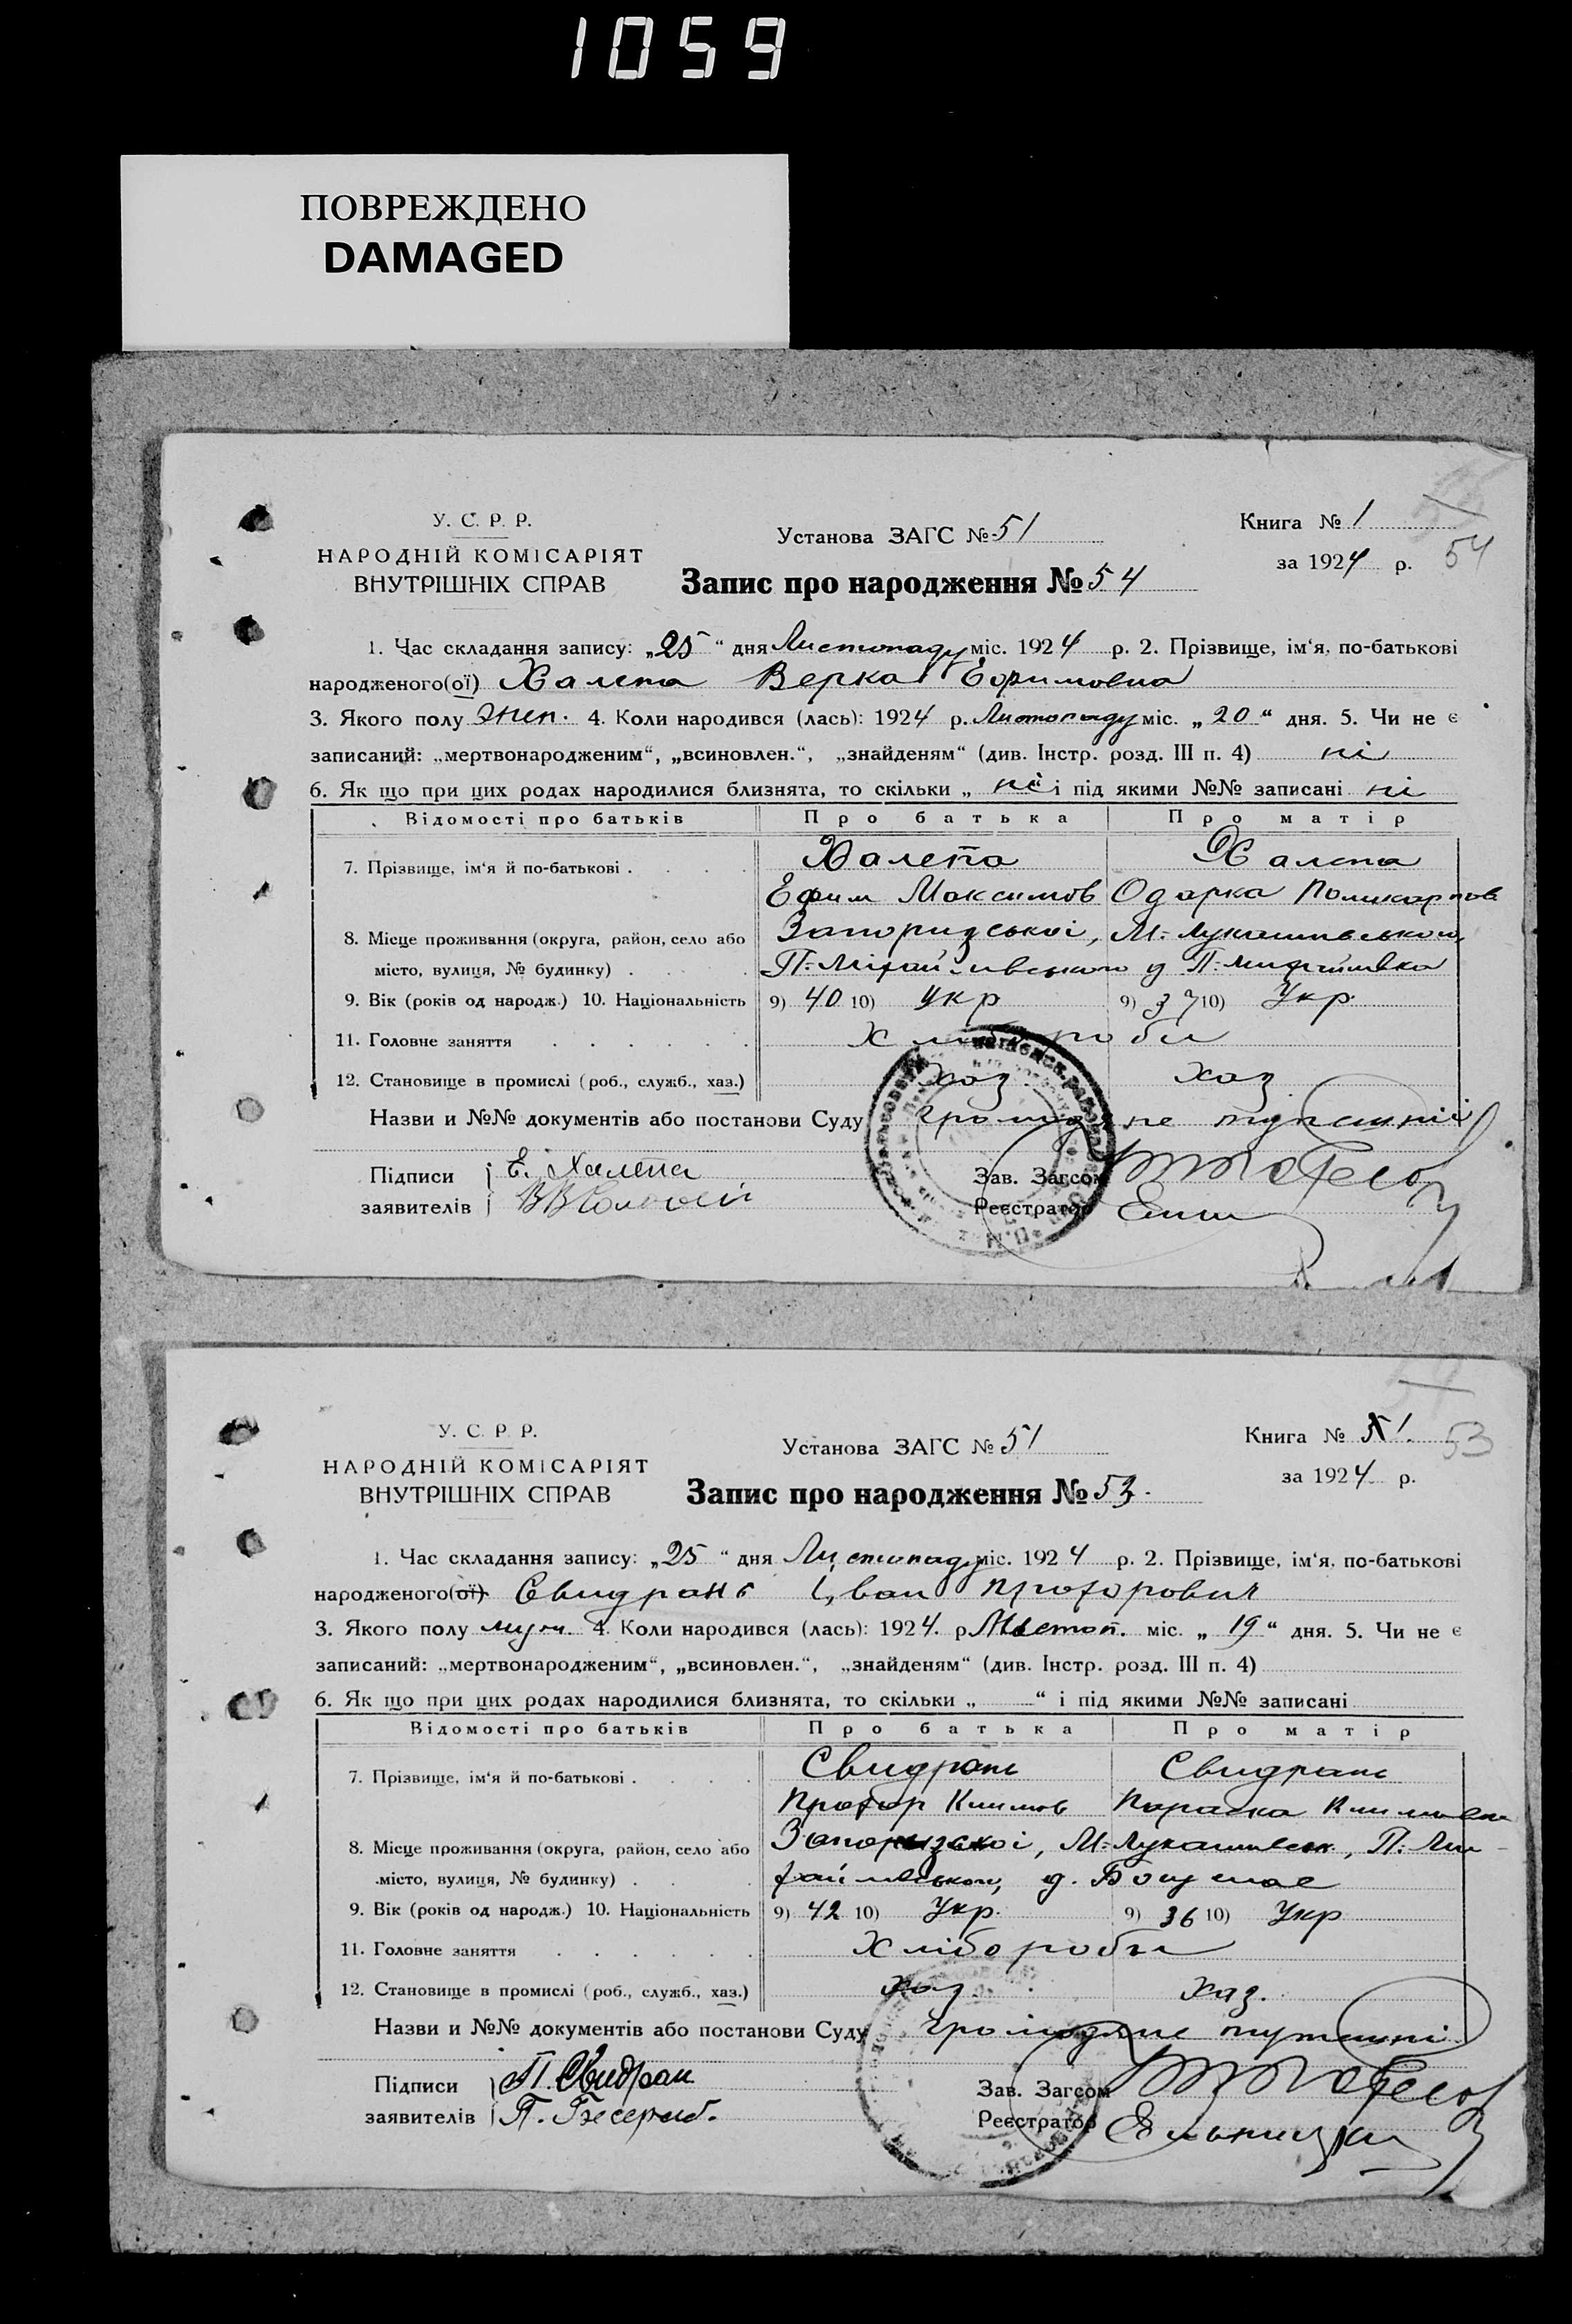 1059
ПОВРЕЖДЕНО
DAMAGED
У. С. Р. Р.
НАРОДНІЙ КОМІСАРІЯТ
ВНУТРІШНІХ СПРАВ
Установа ЗАГС № 51
Книга № 1
за 1924 р. 54
Запис про народження № 54
1. Час складання запису: „25“ дня Листопаду міс. 1924 р. 2. Прізвище, ім‘я, по-батькові
народженого(ої) Халепа Верка Ефимовна
3. Якого полу жен. 4. Коли народився (лась): 1924 р. Листопаду міс. „20“ дня. 5. Чи не є
записаний: „мертвонародженим“, „всиновлен.“, „знайденям“ (див. Інстр. розд. III п. 4) ні
6. Як що при цих родах народилися близнята, то скільки „ ні і під якими №№ записані ні
Відомості про батьків Про батька Про матір
7. Прізвище, ім‘я й по-батькові . . . . Халепа Халепа
Ефим Максимов Одарка Поликарпов
8. Місце проживання (округа, район, село або Запоризської, М.-Лукашивського,
місто, вулиця, № будинку) . . . . П.-Михайливського
9. Вік (років од народж.) 10. Національність 9) 40 10) Укр 9) 37 10) Укр.
11. Головне заняття . . . . . . Хлибороби
12. Становище в промислі (роб., служб., хаз.) хаз. хаз
Назви и №№ документів або постанови Суду громодяне тутешні
Підписи Е. Халепа Зав. Загсом
заявителів Реєстратор
У. С. Р. Р.
НАРОДНІЙ КОМІСАРІЯТ
ВНУТРІШНІХ СПРАВ
Установа ЗАГС № 51
Книга № 1. 53
за 1924 р.
Запис про народження № 53.
1. Час складання запису: „25“ дня Листопаду міс. 1924 р. 2. Прізвище, ім‘я, по-батькові
народженого(ої) Свидрань Іван Прохорович
3. Якого полу муж. 4. Коли народився (лась): 1924. р. Листоп. міс. „19“ дня. 5. Чи не є
записаний: „мертвонародженим“, „всиновлен.“, „знайденям“ (див. Інстр. розд. III п. 4)
6. Як що при цих родах народилися близнята, то скільки „ “ і під якими №№ записані
Відомості про батьків Про батька Про матір
7. Прізвище, ім‘я й по-батькові . . . . Свидрань Свидрань
Прохор Климов Параска Климовна
8. Місце проживання (округа, район, село або Запоризської, М.-Лукашивськ, П.-Ми-
місто, вулиця, № будинку) . . . хайливськои,
9. Вік (років од народж.) 10. Національність 9) 42 10) Укр. 9) 36 10) Укр
11. Головне заняття . . . . . . Хлібороби
12. Становище в промислі (роб., служб., хаз.) хаз. хаз.
Назви и №№ документів або постанови Суду громодяне тутешні
Підписи П. Свидран Зав. Загсом
заявителів Реєстратор Ельницкий